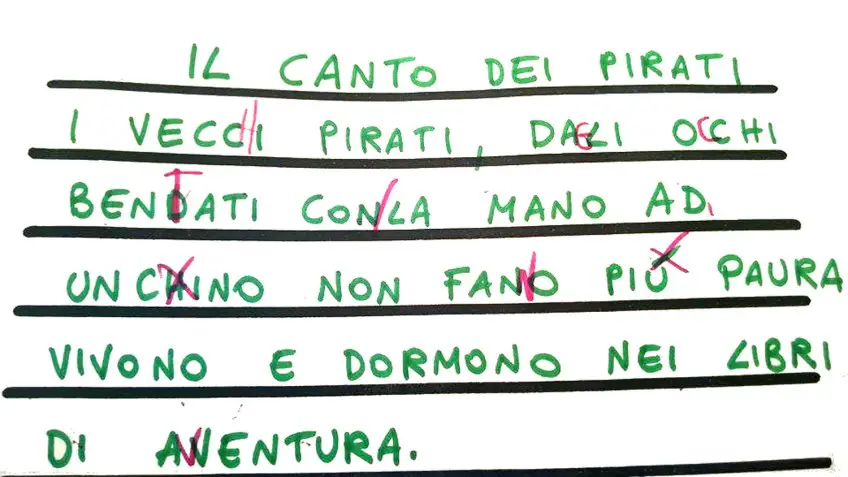 IL CANTO DEI PIRATI
I VECCHI PIRATI, DAGLI OCCHI
BENDATI CON/LA MANO AD
UNCHINO NON FANNO PIÙ PAURA
VIVONO E DORMONO NEI LIBRI
DI AVVENTURA.